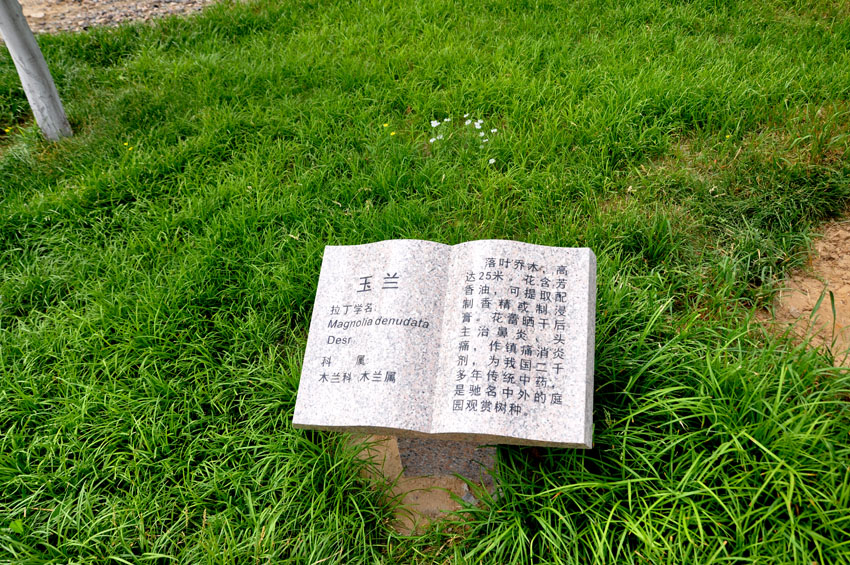 玉兰
拉丁学名:
Magnolia denudata
Desr
科 属
木兰科 木兰属
落叶乔木，高
达25米，花含芳
香油，可提取配
制香精或制浸
膏。花蕾晒干后
主治鼻炎、头
痛，作镇痛消炎
剂，为我国二千
多年传统中药，
是驰名中外的庭
园观赏树种